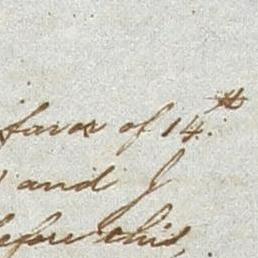 favor of 14.th
and I
before this